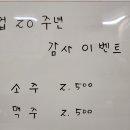 업 20주년
감사 이벤트
소주 2.500
맥주 2.500